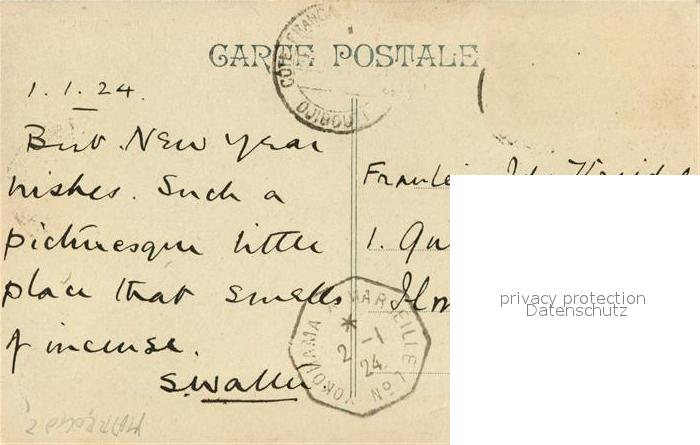 CARTE POSTALE
1.1.24.
Best New Year
wishes. Such a
picturesque little
place that smells
of incense.
Swallu
Fraulei
1. Qu
Ilm
YOKOHAMA A MARSEILLE L on
*
2 -1
24
privacy protection
Datenschutz